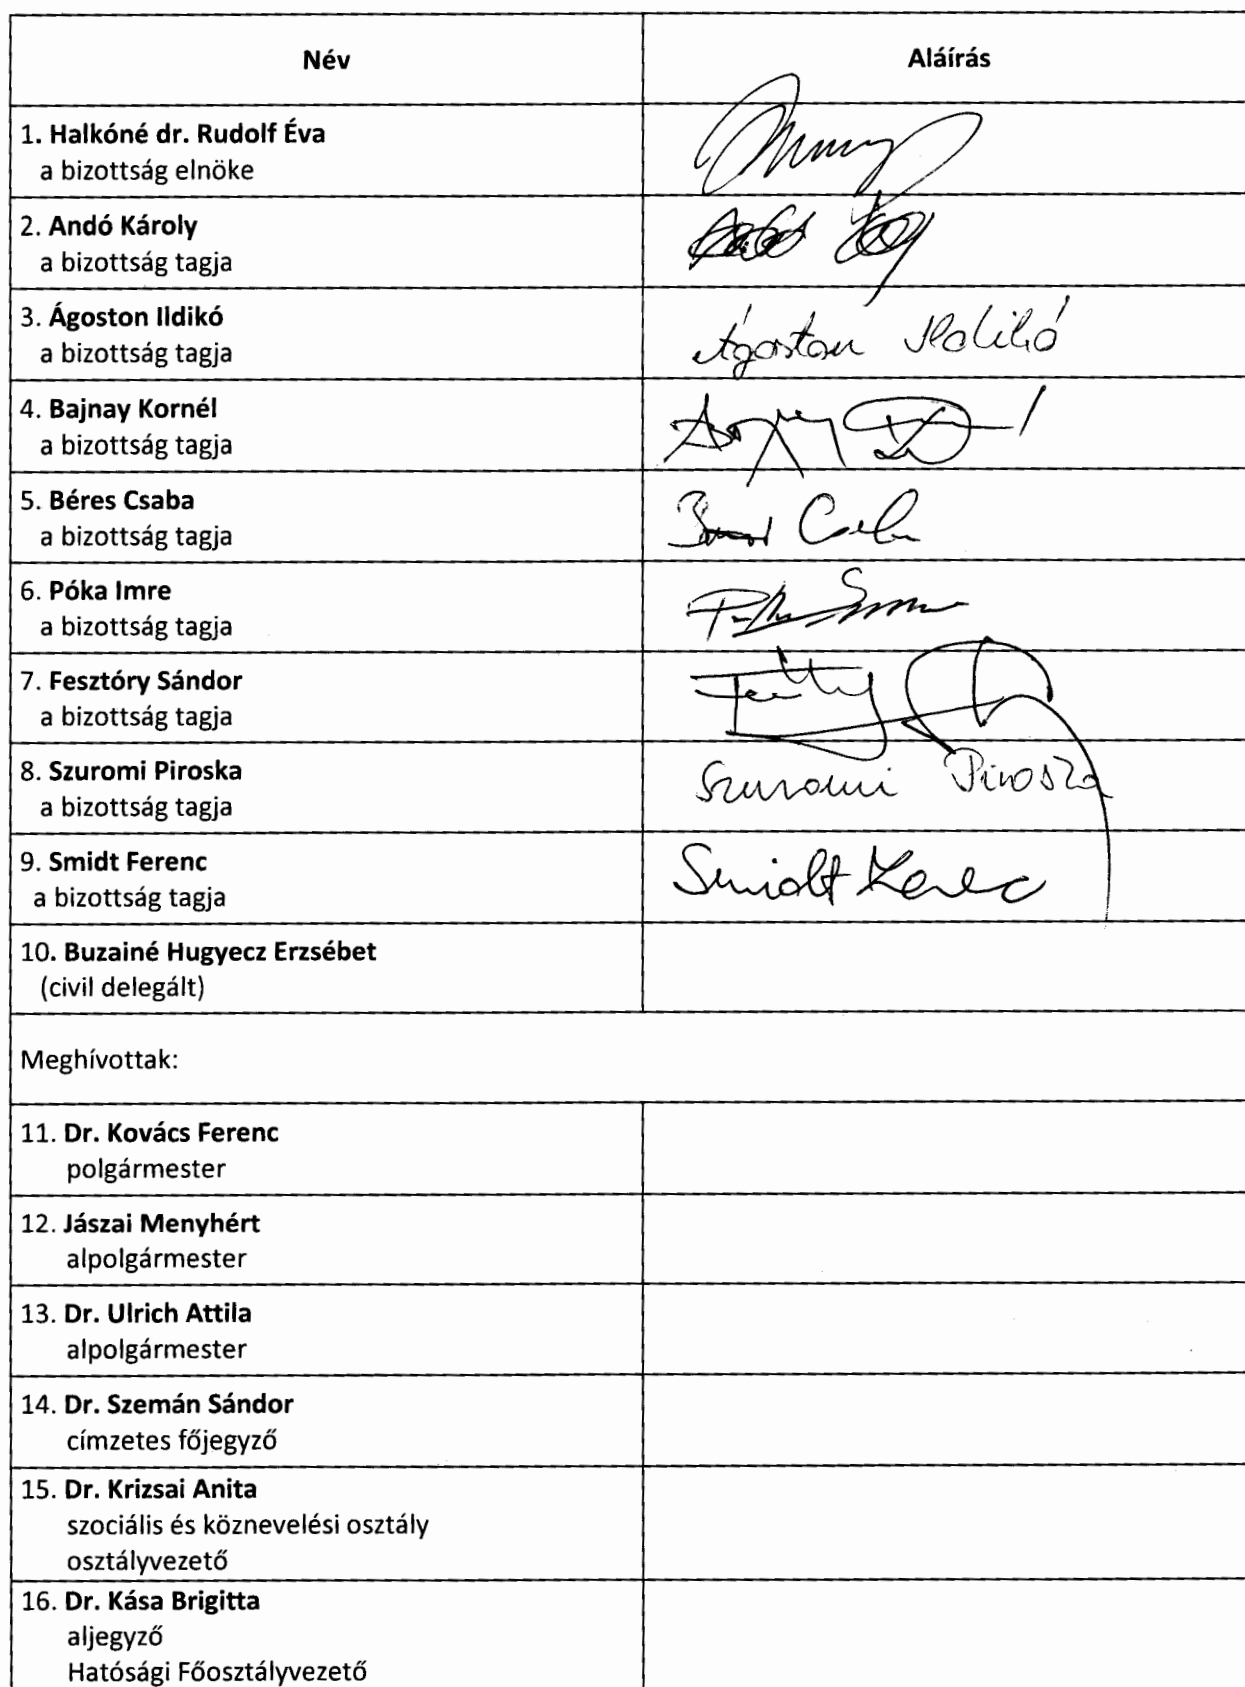 Név Aláírás
1. Halkóné dr. Rudolf Éva
a bizottság elnöke
2. Andó Károly
a bizottság tagja
3. Ágoston Ildikó Ágoston Ildikó
a bizottság tagja
4. Bajnay Kornél
a bizottság tagja
5. Béres Csaba
a bizottság tagja
6. Póka Imre
a bizottság tagja
7. Fesztóry Sándor
a bizottság tagja
8. Szuromi Piroska Szuromi Piroska
a bizottság tagja
9. Smidt Ferenc Smidt Ferenc
a bizottság tagja
10. Buzainé Hugyecz Erzsébet
(civil delegált)
Meghívottak:
11. Dr. Kovács Ferenc
polgármester
12. Jászai Menyhért
alpolgármester
13. Dr. Ulrich Attila
alpolgármester
14. Dr. Szemán Sándor
címzetes főjegyző
15. Dr. Krizsai Anita
szociális és köznevelési osztály
osztályvezető
16. Dr. Kása Brigitta
aljegyző
Hatósági Főosztályvezető